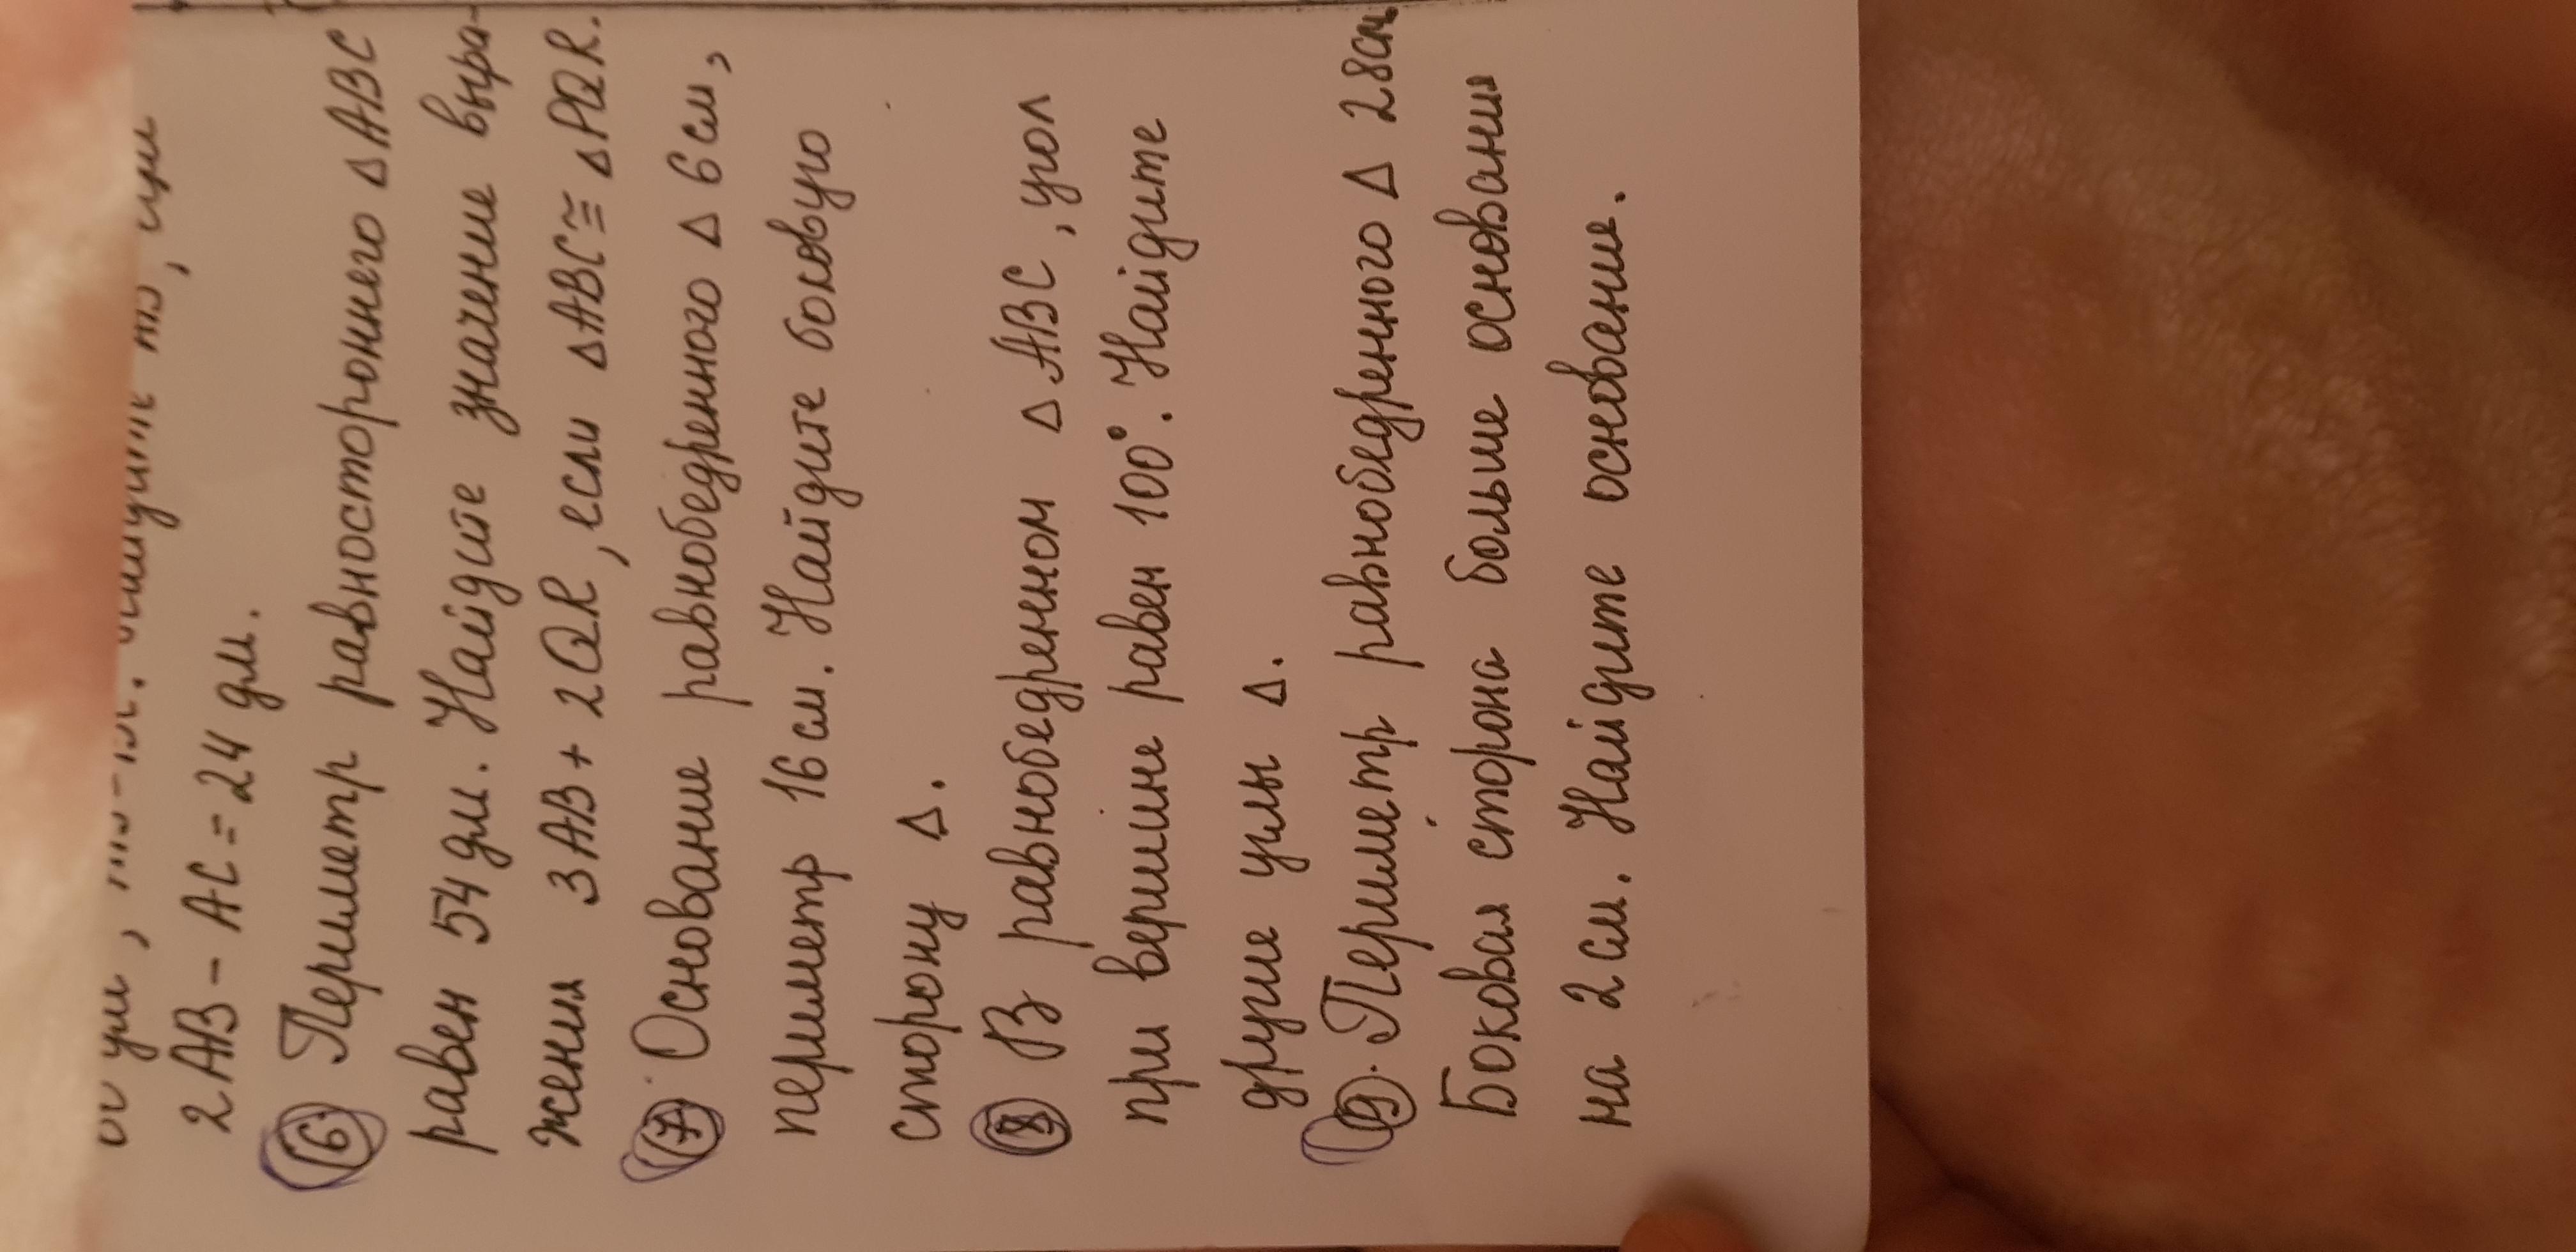 2AB - AC = 24 дм.
6 Периметр равностороннего Δ ABC
равен 54 дм. Найдите значение выра-
жения 3AB + 2QR, если ΔABC ≅ ΔPQR.
7. Основание равнобедренного Δ 6 см,
периметр 16 см. Найдите боковую
сторону Δ.
8 В равнобедренном Δ ABC, угол
при вершине равен 100°. Найдите
другие углы Δ.
9. Периметр равнобедренного Δ 28см
Боковая сторона больше основания
на 2 см. Найдите основание.